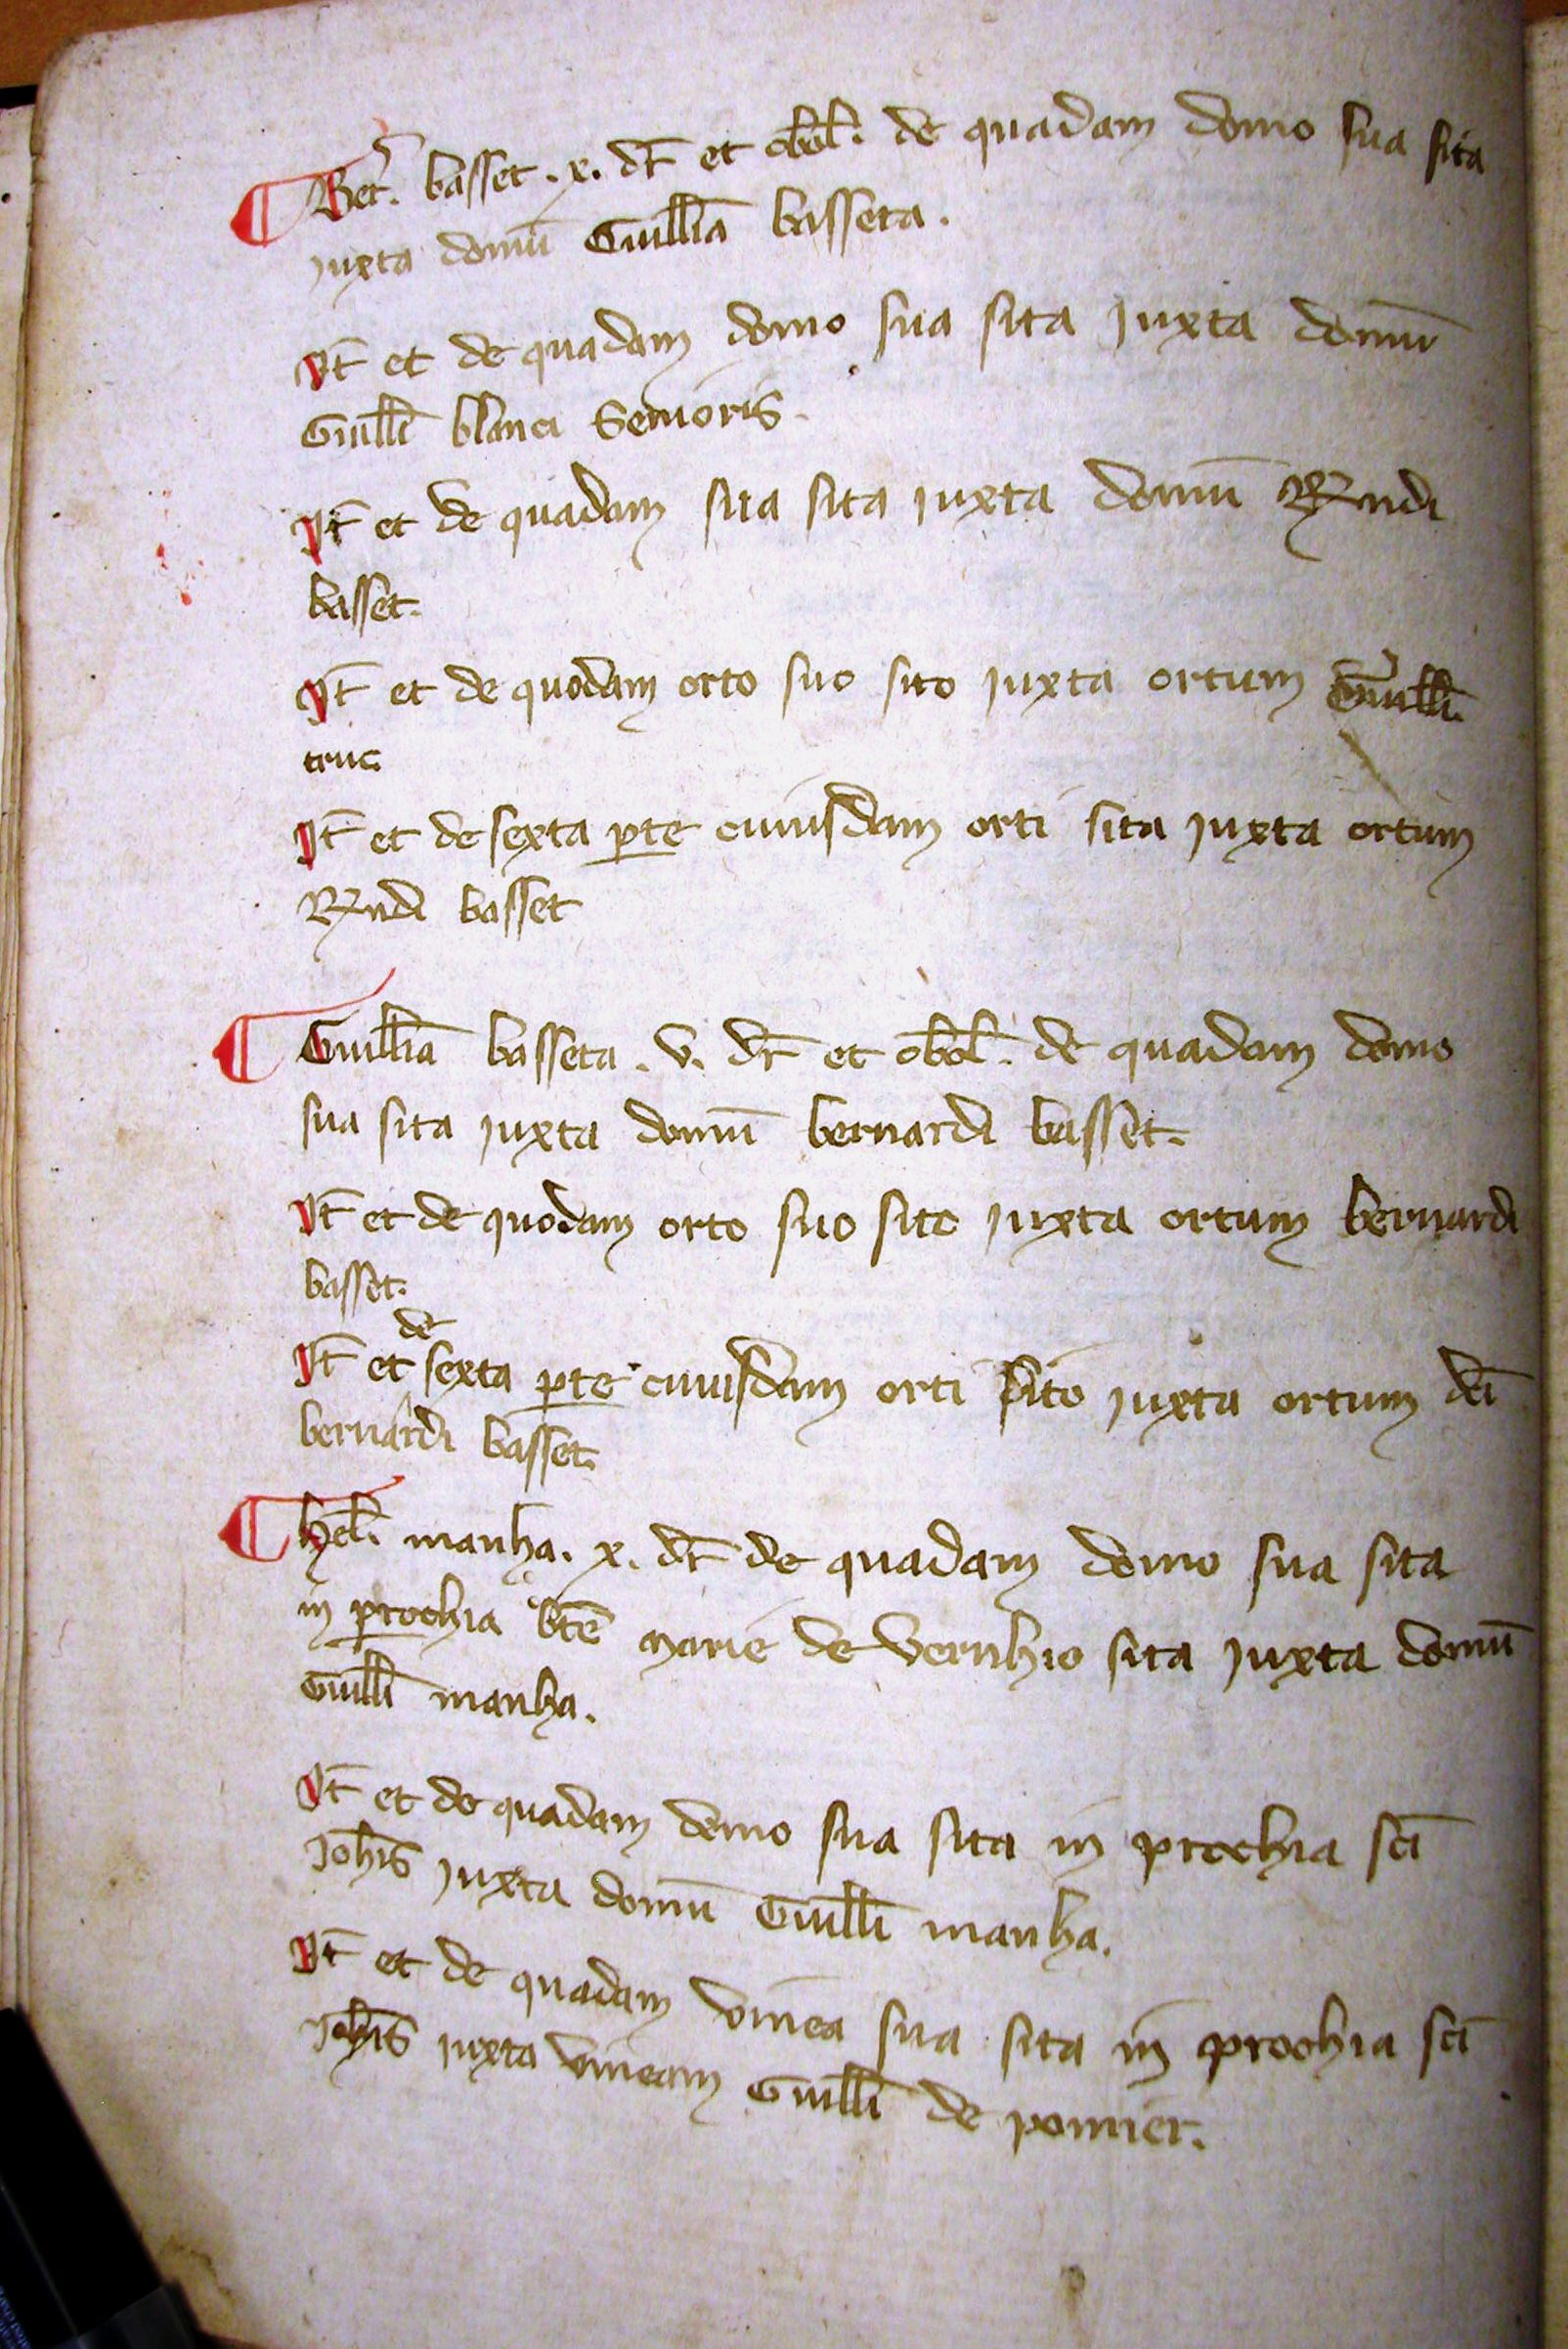 Bet̃. basset . x. dr̃ et obol̃. de quadam domo sua sita
juxta domũ Guill̃ia basseta .
Jt̃ et de quadam domo sua sita juxta domũ
Guill̃i blanci Senioris .
Jt̃ et de quadam sua sita juxta domũ R̃undi
basset.
Jt̃ et de quodam orto suo sito juxta ortum Guill̃i.
truc.
Jt̃ et de sexta p̱te cuiusdam orti sita juxta ortum
R̃undi basset
Guill̃ia basseta . v. dr̃ et obol̃. de quadam domo
sua sita juxta domũ bernardi basset.
Jt̃ et de quodam orto suo sito juxta ortum bernardi
basset.
Jt̃ et de sexta p̱te cuiusdam orti sito juxta ortum dc̃i
bernardi basset.
hel̃. manha. x. dr̃ de quadam domo sua sita
in p̱rochia bt̃e marie de vernhio sita juxta domũ
Guill̃i manha.
Jt̃ et de quadam domo sua sita in p̱rochia sc̃i
Joh̃is juxta domũ Guill̃i manha.
Jt̃ et de quadam vinea sua sita in p̱rochia sc̃i
Joh̃is juxta vineam Guill̃i de pomier.